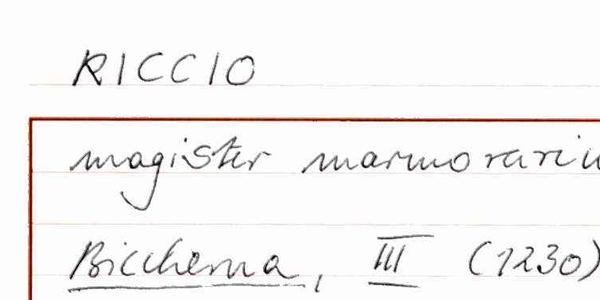 RICCIO
magister marmorariu
Biccherna, III (1230)